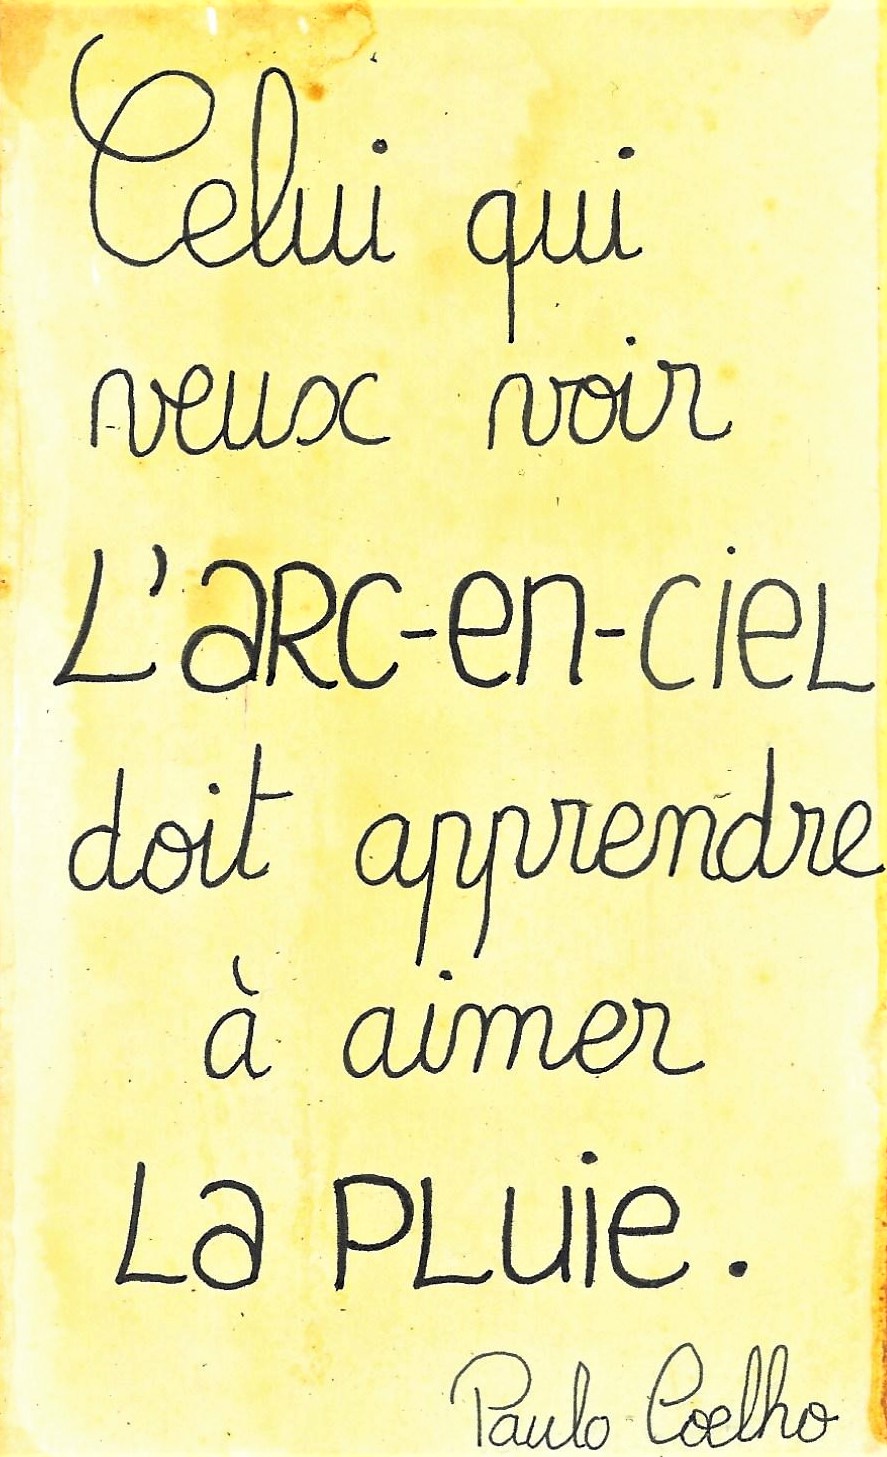 Celui qui
veux voir
L'aRC-en-CieL
doit apprendre
à aimer
La PLuie.
Paulo Coelho